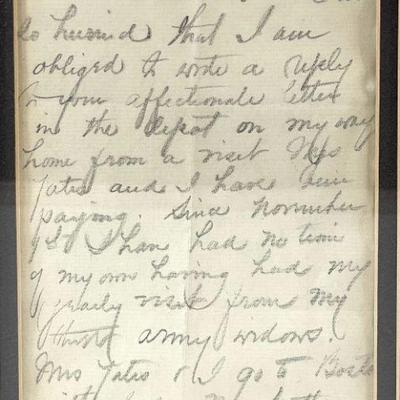 so hurried that I am
obliged to write a reply
to your affectionate letter
in the depot on my way
home from a visit Mrs
Yates and I have been
paying. Since November
I have had no time
of my own having had my
yearly visit from my
army widows.
Mrs Yates & I go to Bosto